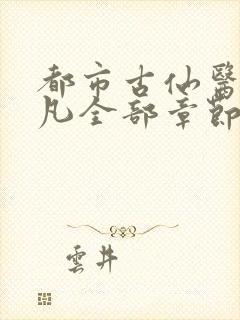 都市古仙醫
凡全部章節
雲井